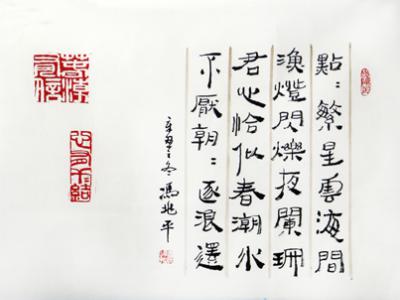 點：繁星雲海間
漁燈閃爍夜闌珊
君心恰似春潮水
不厭朝：逐浪還
辛丑冬 馮兆平